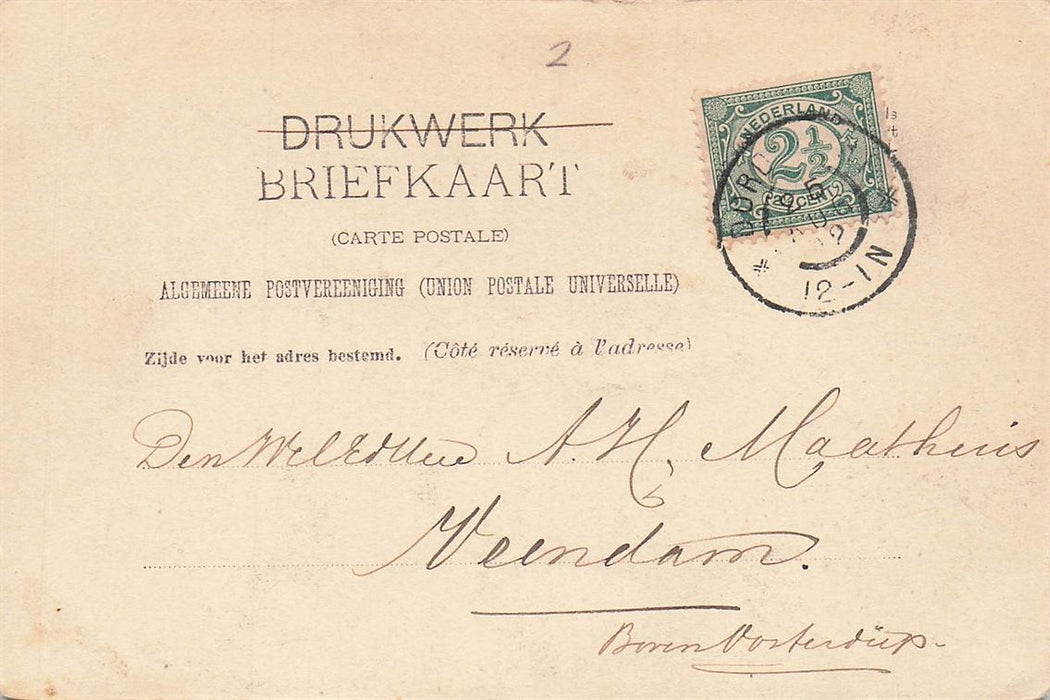 2
DRUKWERK
BRIEFKAART
(CARTE POSTALE)
ALGEMEENE POSTVEREENIGING (UNION POSTALE UNIVERSELLE)
Zijde voor het adres bestemd. (Côté réservé à l'adresse)
NEDERLAND
2½
CENT
12-1N
Den WelEdHeer A. H. Maathuis
Veendam.
Boven Oosterdiep